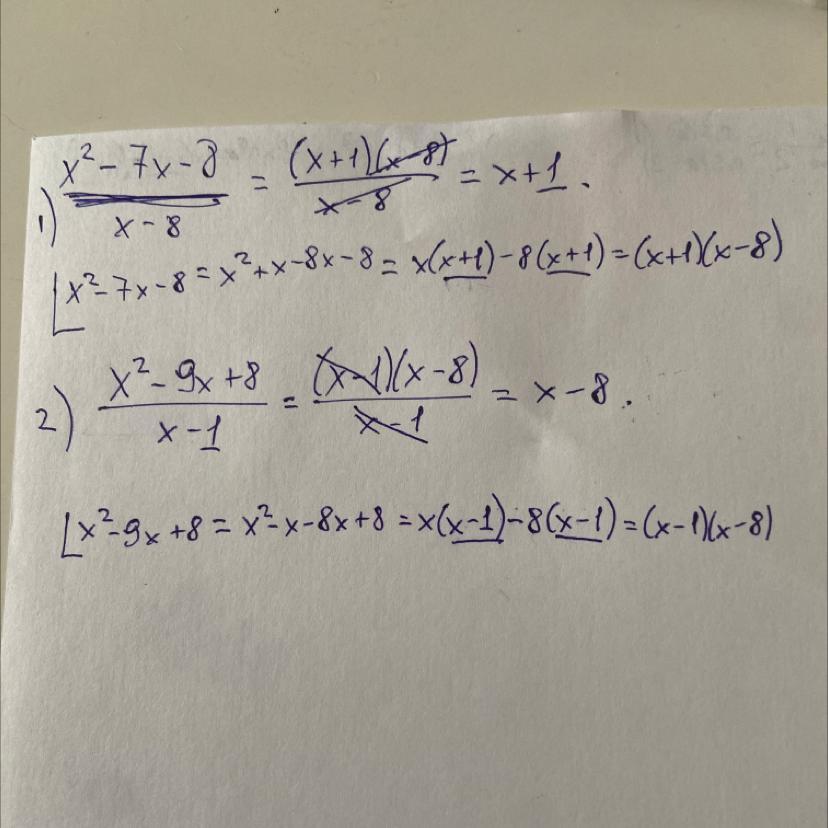 1) (x² - 7x - 8)/(x - 8) = ((x+1)(x-8))/(x - 8) = x + 1.
[x² - 7x - 8 = x² + x - 8x - 8 = x(x+1) - 8(x+1) = (x+1)(x-8)
2) (x² - 9x + 8)/(x - 1) = ((x-1)(x-8))/(x - 1) = x - 8.
[x² - 9x + 8 = x² - x - 8x + 8 = x(x-1) - 8(x-1) = (x-1)(x-8)